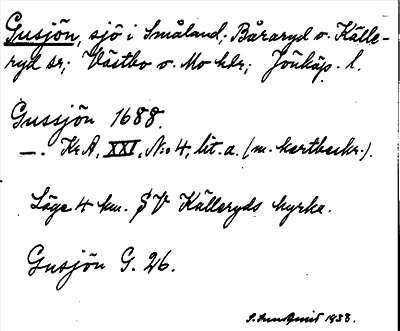 Gusjön, sjö i Småland; Båraryd o. Källe-
ryd sr; Västbo o. Mo hdr; Jönköp. l.
Gussjön 1688.
—. Kr.A, XXI, N:o 4, lit. a. (m. kartbeskr.).
Läge 4 km. SV Källeryds kyrka.
Gusjön G. 26.
1938.